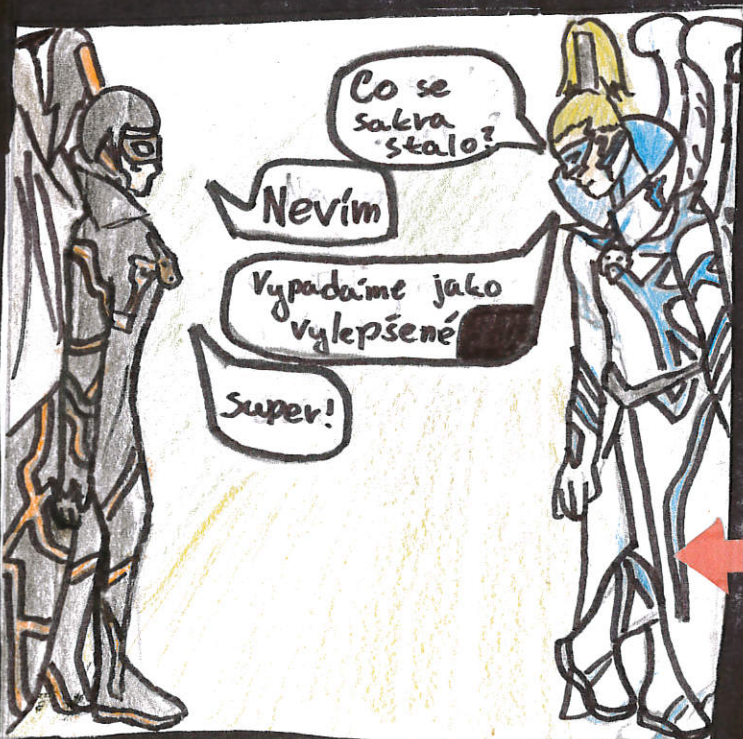 Co se
sakra
stalo?
Nevím
Vypadáme jako
vylepšené
Super!